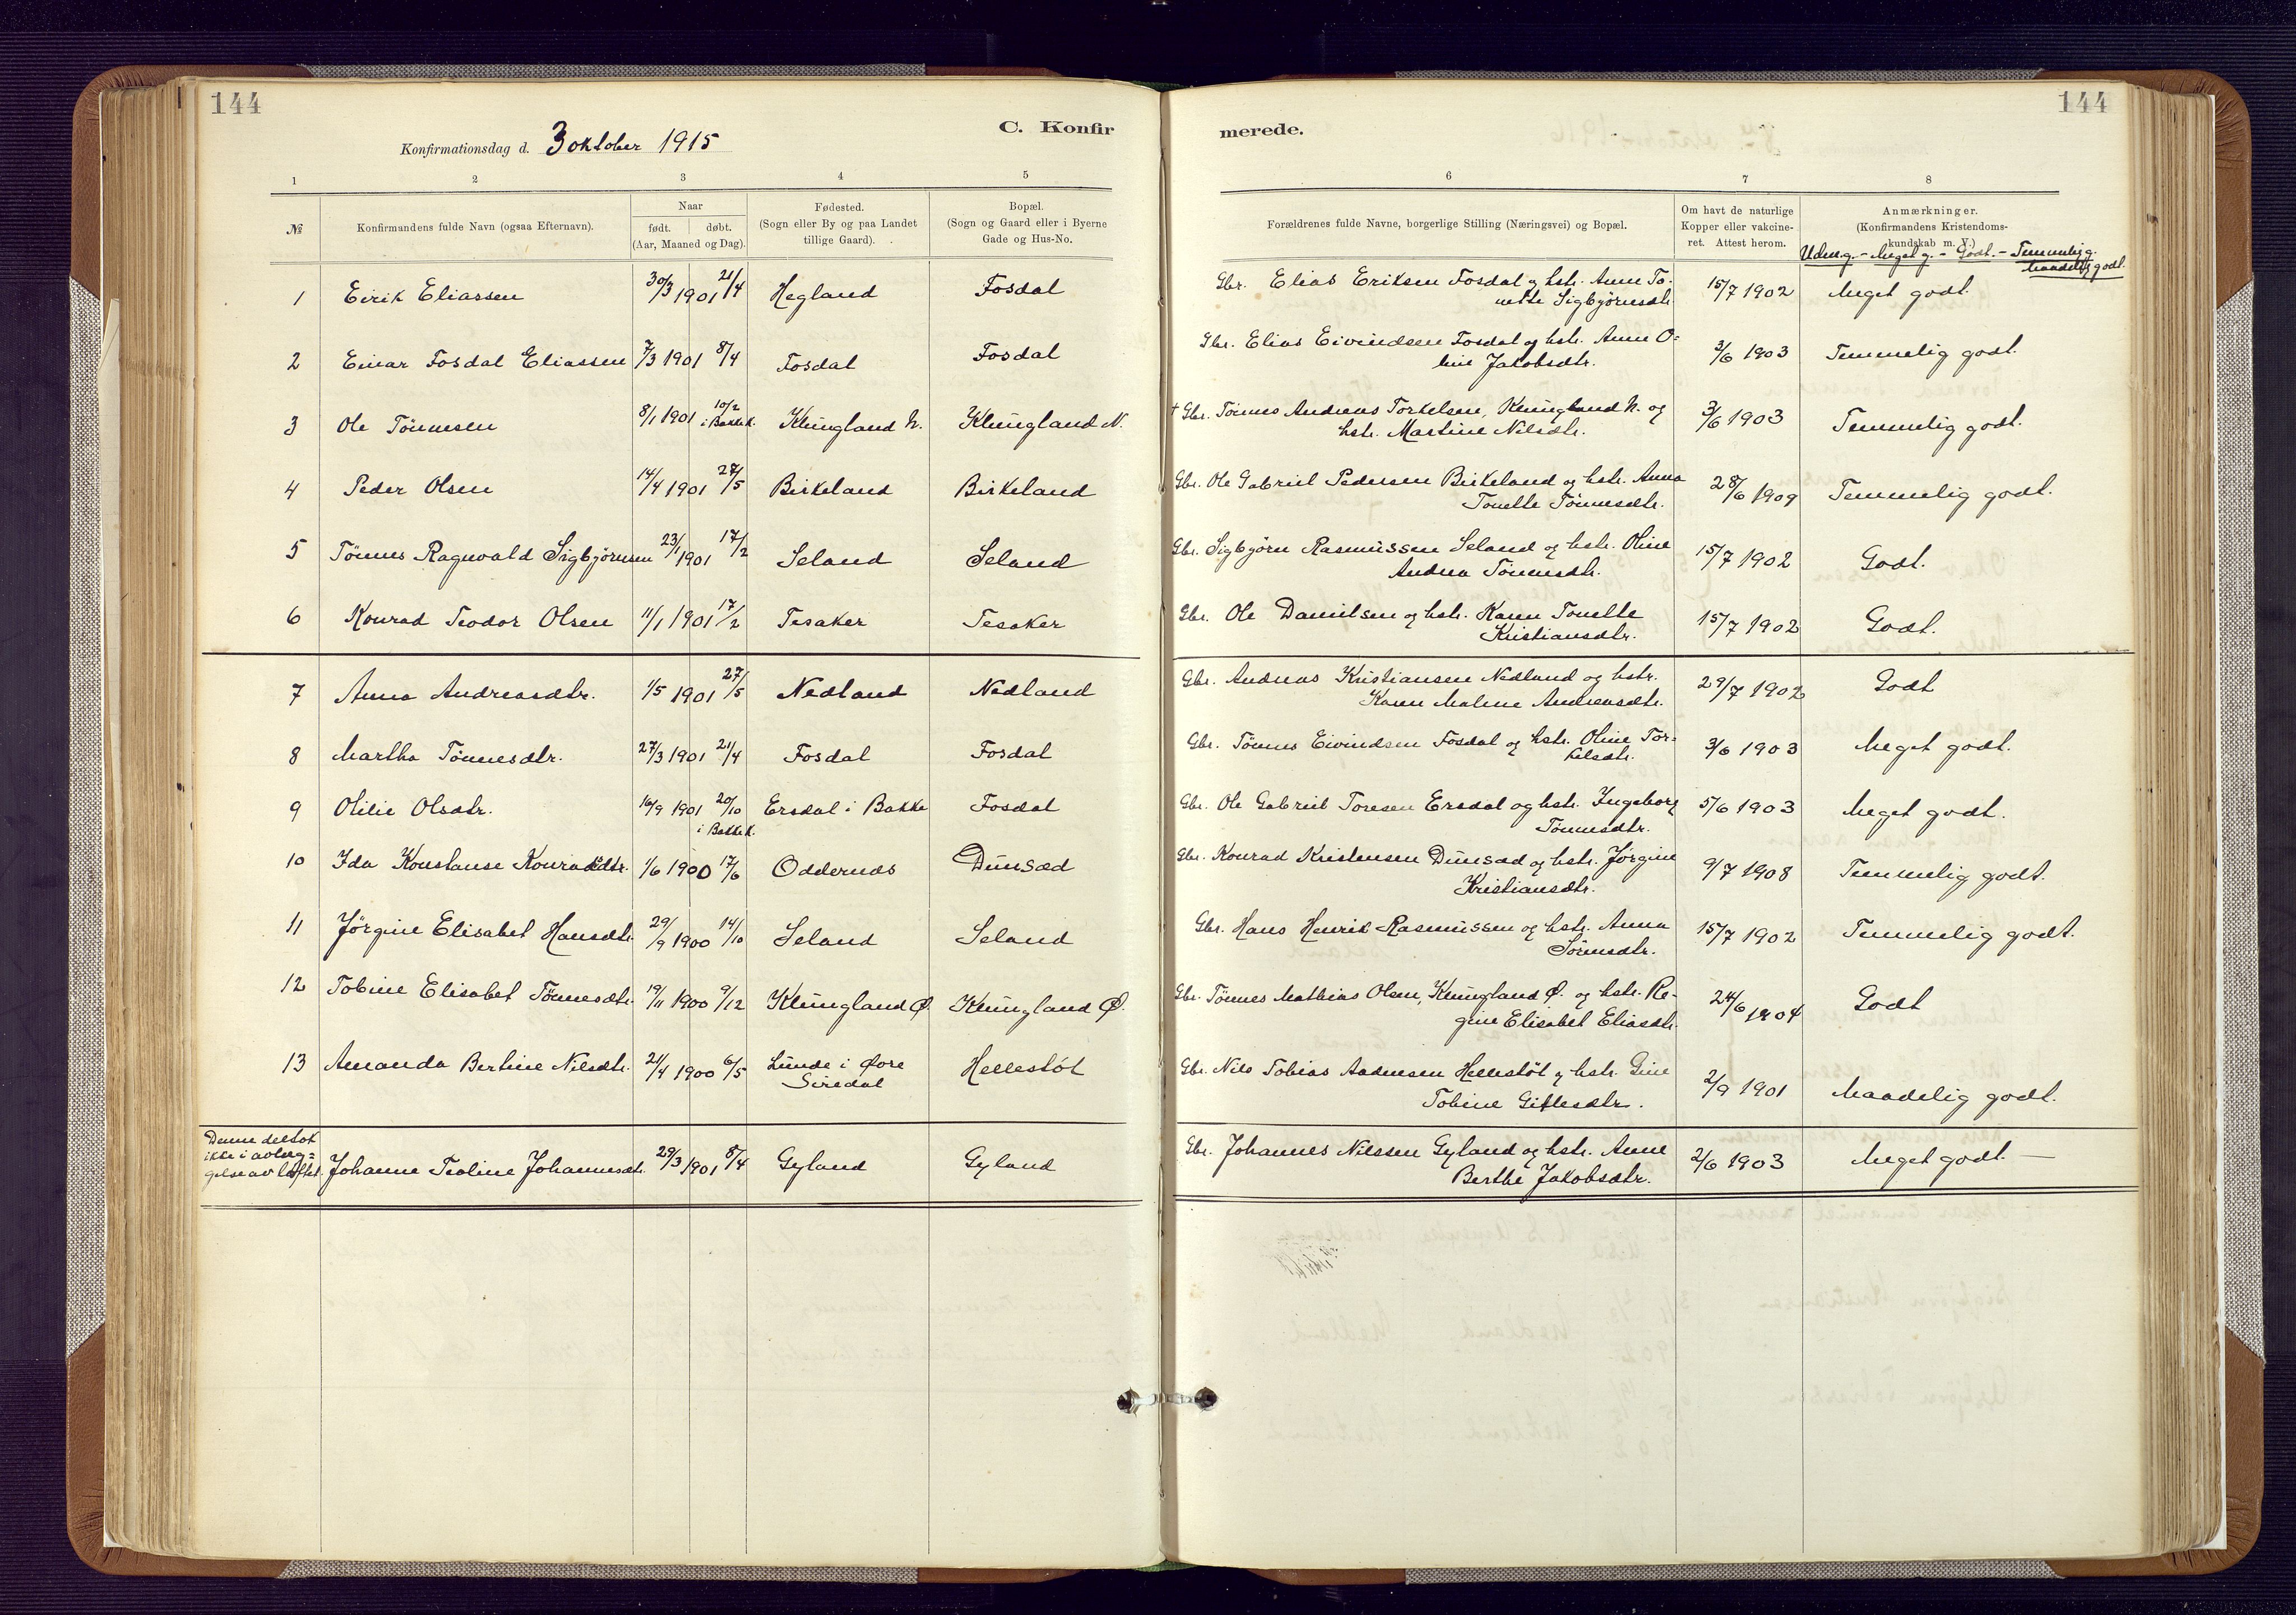 144
C. Konfir
Konfirmationsdag d. 3 oktober 1915
1 2 3 4 5
№ Konfirmandens fulde Navn (ogsaa Efternavn).
Naar
født. døbt.
(Aar, Maaned og Dag).
Fødested.
(Sogn eller By og paa Landet
tillige Gaard).
Bopæl.
(Sogn og Gaard eller i Byerne
Gade og Hus-No.
1 Eirik Eliassen 30/3 1901 21/4 Hegland Fosdal
2 Einar Fosdal Eliassen 7/3 1901 8/4 Fosdal Fosdal
3 Ole Tönnesen 8/1 1901 10/2 i Bakke k. Klungland N. Klungland N.
4 Peder Olsen 14/4 1901 27/5 Birkeland Birkeland
5 Tönnes Ragnvald Sigbjörnsen 23/1 1901 17/2 Seland Seland
6 Konrad Teodor Olsen 11/1 1901 17/2 Tesaker Tesaker
7 Anna Andreasdtr. 1/5 1901 27/5 Nedland Nedland
8 Martha Tönnesdtr. 27/3 1901 21/4 Fosdal Fosdal
9 Otilie Olsdtr. 16/9 1901 20/10 i Bakke k. Ersdal i Bakke Fosdal
10 Ida Konstanse Konradsdtr. 1/6 1900 17/6 Oddernæs Dunsæd
11 Jørgine Elisabet Hansdtr. 29/9 1900 14/10 Seland Seland
12 Tobine Elisabet Tönnesdtr. 19/11 1900 9/12 Klungland Ø. Klungland Ø.
13 Amanda Bertine Nilsdtr. 21/4 1900 6/5 Lunde i Øvre Siredal Hellestöl
Denne deltok
ikke i avlæg=
gelse av löftet. Johanne Teoline Johannesdtr. 29/3 1901 8/4 Gyland Gyland
144
merede.
6 7 8
Forældrenes fulde Navne, borgerlige Stilling (Næringsvei) og Bopæl.
Om havt de naturlige
Kopper eller vakcine-
ret. Attest herom.
Anmærkninger.
(Konfirmandens Kristendoms-
kundskab m. V.)
Udm.g. - Meget g. - Godt. - Temmelig g.
Maadelig godt.
Gbr. Elias Eriksen Fosdal og hstr. Anne To-
nette Sigbjörnsdtr. 15/7 1902 Meget godt.
Gbr. Elias Eivindsen Fosdal og hstr. Anne O=
line Jakobsdtr. 3/6 1903 Temmelig godt.
† Gbr. Tönnes Andreas Torkelsen, Klungland N. og
hstr. Martine Nilsdtr. 3/6 1903 Temmelig godt.
Gbr. Ole Gabriel Pedersen Birkeland og hstr. Anna
Tonette Tönnesdtr. 28/6 1909 Temmelig godt.
Gbr. Sigbjörn Rasmussen Seland og hstr. Oline
Andrea Tönnesdtr. 15/7 1902 Godt.
Gbr. Ole Danielsen og hstr. Karen Tonette
Kristiansdtr. 15/7 1902 Godt.
Gbr. Andreas Kristiansen Nedland og hstr.
Karen Malene Andreasdtr. 29/7 1902 Godt
Gbr. Tönnes Eivindsen Fosdal og hstr. Oline Tor=
kelsdtr. 3/6 1903 Meget godt.
Gbr. Ole Gabriel Toresen Ersdal og hstr. Ingeborg
Tönnesdtr. 5/6 1903 Meget godt.
Gbr. Konrad Kristensen Dunsæd og hstr. Jørgine
Kristiansdtr. 9/7 1908 Temmelig godt.
Gbr. Hans Henrik Rasmussen og hstr. Anna
Sörensdtr. 15/7 1902 Temmelig godt.
Gbr. Tönnes Mathias Olsen, Klungland Ø. og hstr. Re-
gine Elisabet Eliasdtr. 24/6 1904 Godt
Gbr. Nils Tobias Aadnesen Hellestöl og hstr. Gine
Tobine Gitlesdtr. 2/9 1901 Maadelig godt.
Gbr. Johannes Nilssen Gyland og hstr. Anne
Berthe Jakobsdtr. 2/6 1903 Meget godt. —